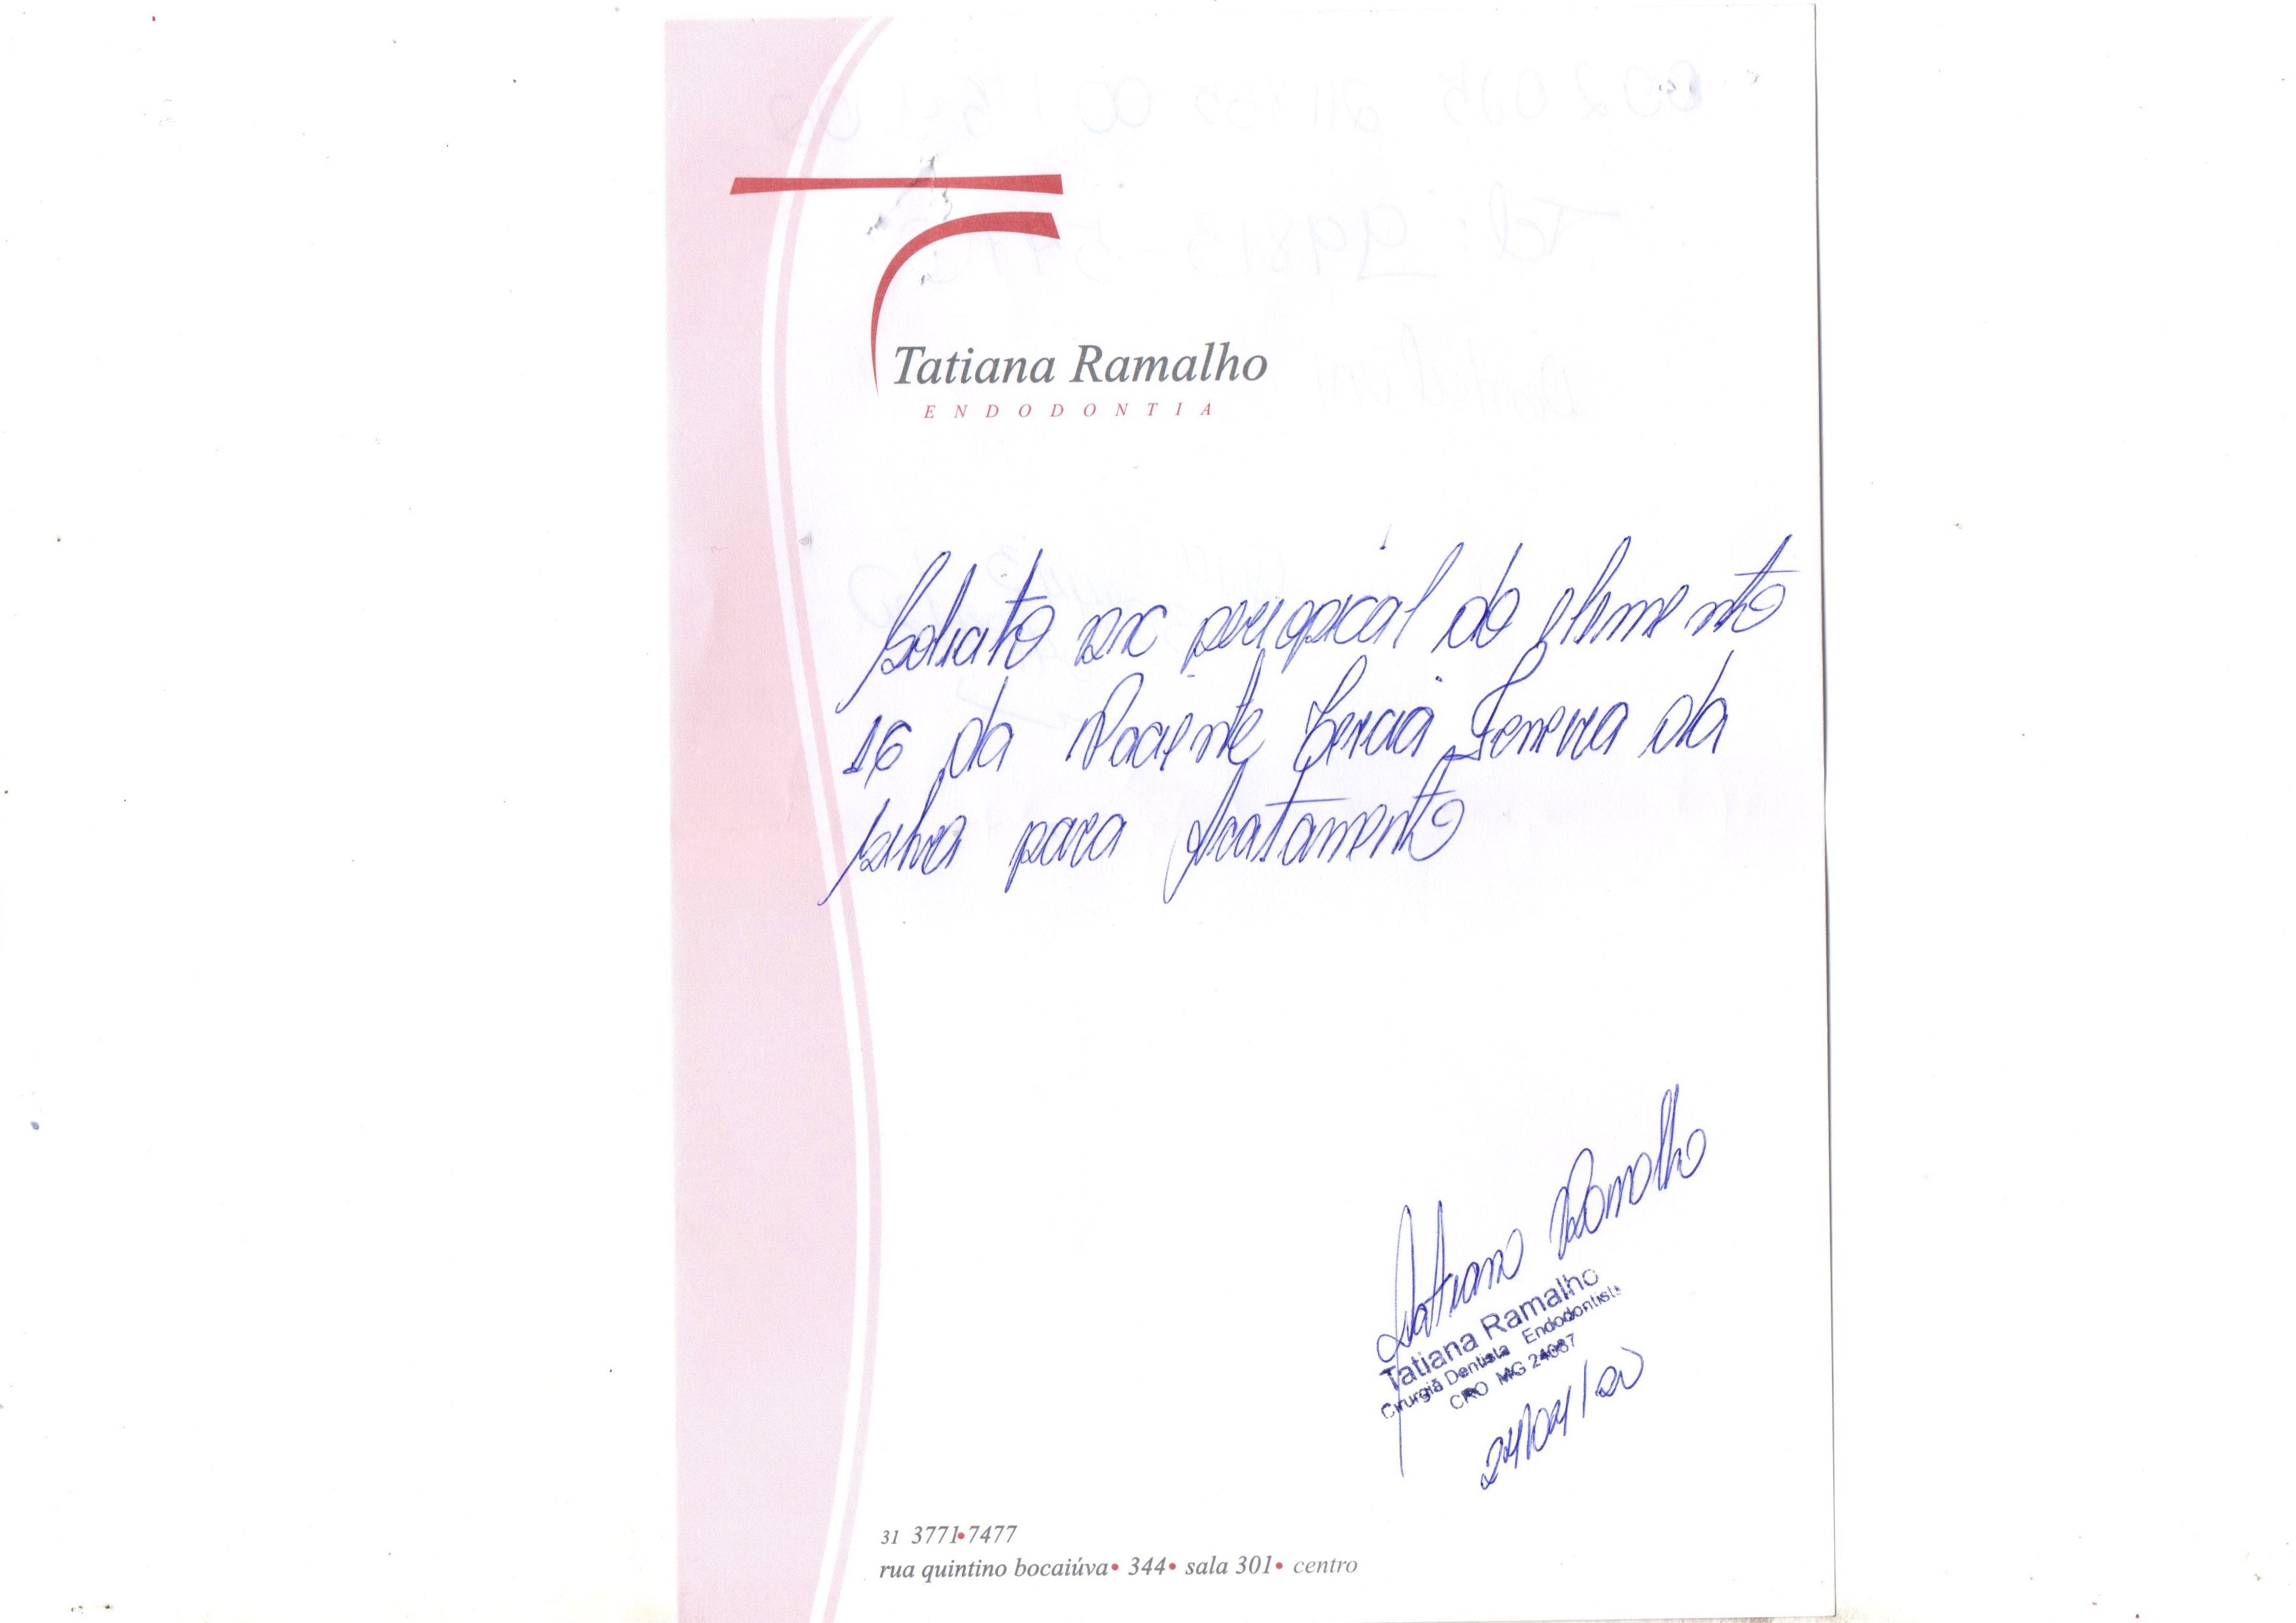 Tatiana Ramalho
ENDODONTIA
Solicito rx periapical do elemento
16 da Paciente Ferreira da
Silva para tratamento
Tatiana Ramalho
Tatiana Ramalho
Cirurgiã Dentista Endodontista
CRO MG 24087
24/04/20
31 3771•7477
rua quintino bocaiúva• 344• sala 301• centro